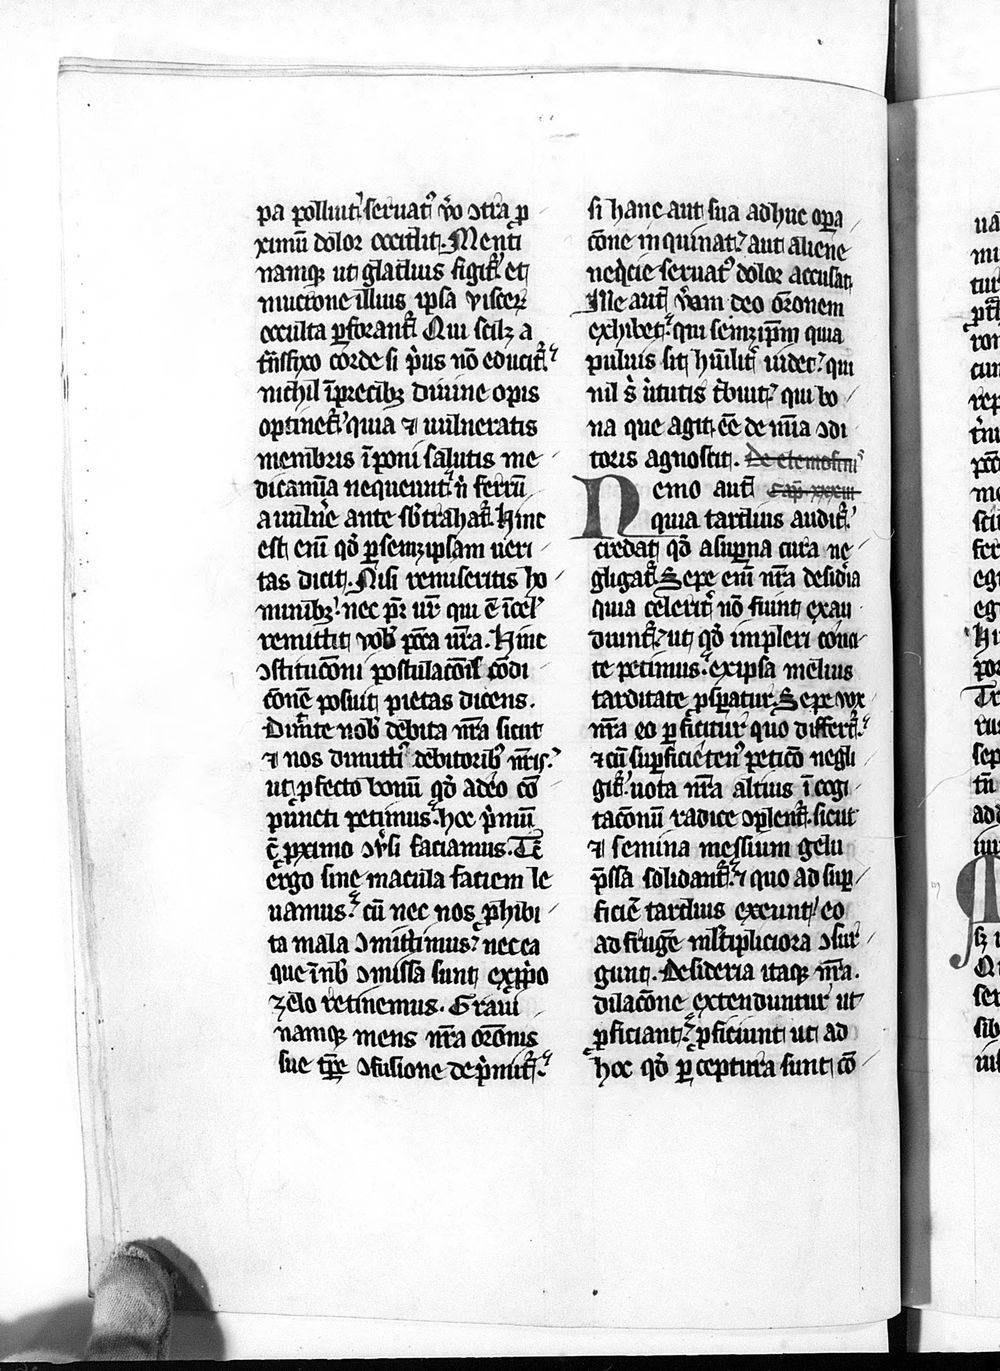 pa polluit᷒ seruat᷒ v̾o ↄtra ꝓ
ximū dolor occidit. Menti
namqꝫ ut gladius figit᷒ et
mucrone illius ipsa viscera
occulta ꝑforant᷒ Qui scilꝫ a
tᷓnsfixo corde si p̾us nō educit᷒
nichil ī precibꝫ diuine opis
optinet᷒ quia ⁊ uulneratis
membris īponi salutis me
dicamīa nequeunt n̾ ferrū
a uuln̾e ante sb̾trahat᷒. Hinc
est enī qd̾ ꝑ semꝫipsam ueri
tas dicit. Nisi remiseritis ho
minibꝫ nec pr̄ vr̄ qui ē ī cel̾
remittit vob̾ pcc̄a vr̄a. Hinc
ↄstitucōni postulacōis cōdi
cōnē posuit pietas dicens.
Dimitte nob̾ debita nr̄a sicut
⁊ nos dimittim᷒ debitorib᷒ nr̄is
ut ꝓfecto bonū qd̾ a deo cō
puncti petimus hoc p̾mū
cū ꝓximo ↄv̾si faciamus. Tūc
ergo sine macula faciem le
uamus cū nec nos ꝓhibi
ta mala ↄmittimus nec ea
que ī nob̾ ↄmissa sunt ex ꝓp̾o
zelo retinemus. Graui
namqꝫ mens nr̄a orōnis
sue tꝑe ↄfusione dep̾mit᷒
si hanc aut sua adhuc oꝑa
cōne inquinat aut aliene
neq̾cie seruat᷒ dolor accusat
Ille aut̄ v̾am deo orōnem
exhibet qui semꝫip̄m quia
puluis sit hūilit̾ videt qui
nil s̾ v̾tutis t̾buit qui bo
na que agit ēē de mīa ↄdi
toris agnoscit. De elemosinis
Nemo aut̄ Cap̄ xxxiii
quia tardius audit᷒
credat qd̾ a suꝑna cura ne
gligat᷒. Sepe enī nr̄a desid̾ia
quia celerit̾ nō fiunt exau
diunt᷒ ut qd̾ impleri conci
te petimus ex ipsa melius
tarditate ꝓsꝑatur. Sepe vox
nr̄a eo ꝑficitur quo differt᷒
⁊ cū suꝑficieten᷒ peticō negli
git᷒ uota nr̄a altius ī cogi
tacōnū radice ↄplent᷒. sicut
⁊ semina messium gelu
p̾ssa solidant᷒ ⁊ quo ad suꝑ
ficiē tardius exeunt eo
ad frugē multipliciora ↄsur
gunt. Desideria itaqꝫ nr̄a.
dilacōne extenduntur ut
ꝓficiant ꝓficiunt ut ad
hoc qd̾ ꝑceptura sunt cō